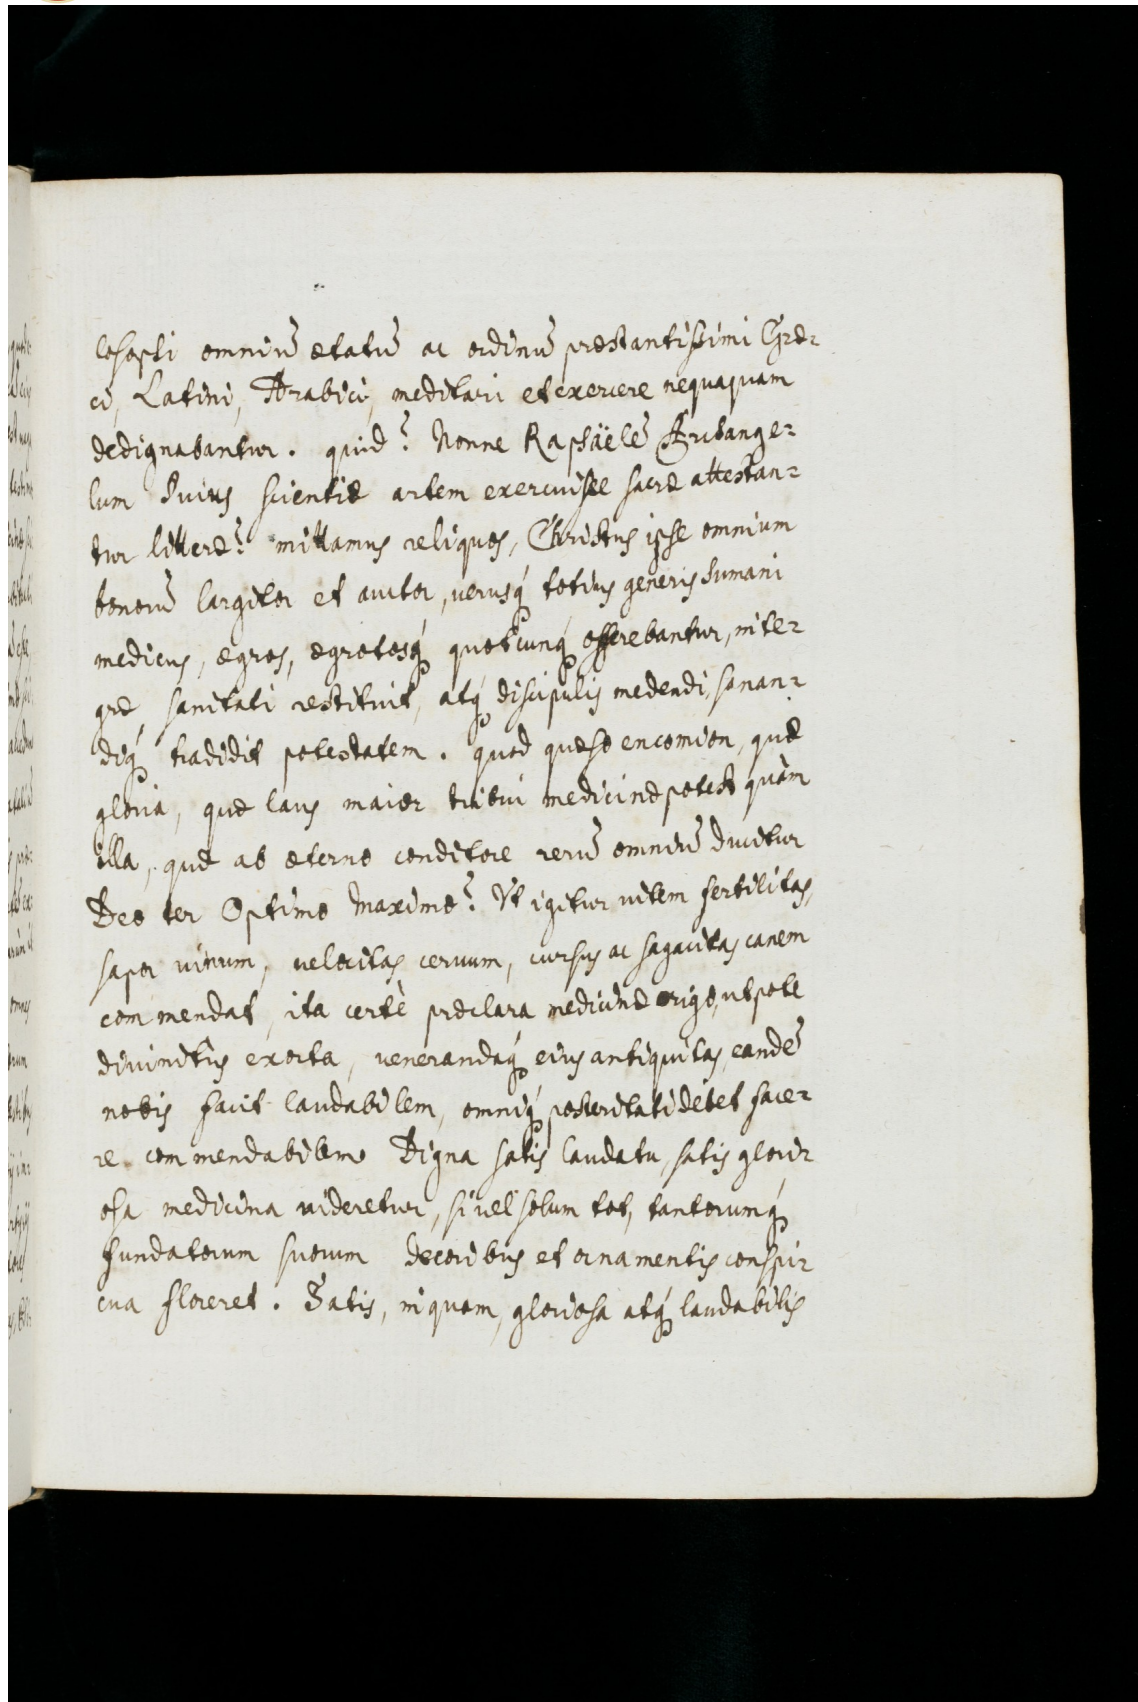 losophi omniũ ætatũ ac ordinũ præstantissimi Græ-
ci, Latini, Arabici, meditari et exercere nequaquam
dedignabantur. quid? Nonne Raphäelẽ Archange-
lum huius scientiæ artem exercuisse sacræ attestan-
tur litteræ? mittamus reliquos, Christus ipse omnium
bonorũ largitor et auctor, verusq́ totius generis humani
medicus, ægros, ægrotosq́ quotcunq́ offerebantur, inte-
græ sanitati restituit, atq́ discipulis medendi, sanan-
diq́ tradidit potestatem. quod quæso encomion, quæ
gloria, quæ laus maior tribui medicinæ potest quàm
illa, quæ ab æterno conditore rerũ omniũ ducitur
Deo ter Optimo Maximo? Ut igitur vitem fertilitas,
sapor vinum, velocitas ceruum, cursus ac sagacitas canem
commendat, ita certè præclara medicinæ origo, utpote
divinitùs exorta, venerandaq́ eius antiquitas, eandẽ
nobis facit laudabilem, omniq́ posteritati debet face-
re commendabilem. Digna satis laudatu, satis glori-
osa medicina videretur, si vel solum tot, tantorumq́
fundatorum suorum decoribus et ornamentis conspi-
cua floreret. Satis, inquam, gloriosa atq́ laudabilis